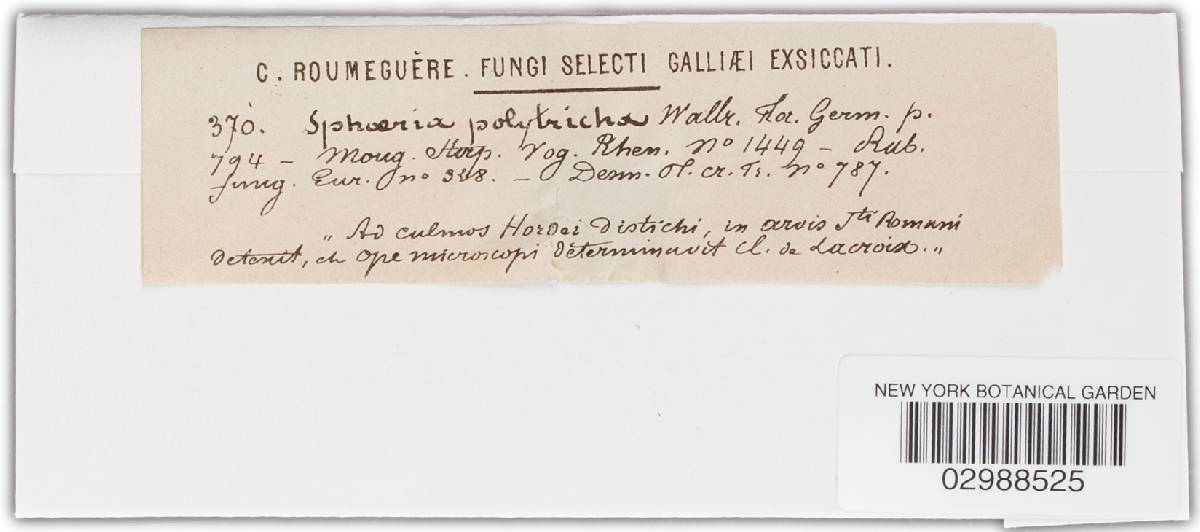 C. ROUMEGUĚRE. FUNGI SELECTI GALLIÆI EXSICCATI.
370. Sphœria polytricha Wallr. Flor. Germ. p.
794 – Moug. Stirp. Vog. Rhen. No 1449 – Rab.
fung. Eur. no 328. – Desm. Pl. cr. Fr. No 787.
„ Ad culmos Hordei Distichi, in arvis Sti Romani
detexit, et ope microscopi determinavit Cl. de Lacroix. „
NEW YORK BOTANICAL GARDEN
02988525